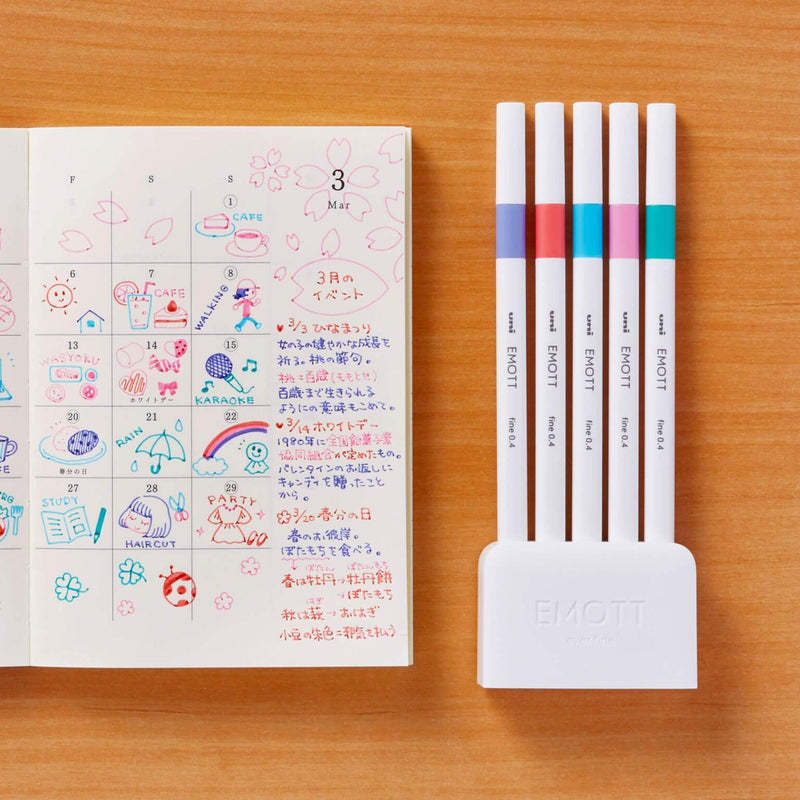 F S S
3
Mar
1
CAFE
6 7 8
CAFE
WALKING
3月の
イベント
13 14 15
WASYOKU
ホワイトデー
KARAOKE
20 21 22
RAIN
春分の日
27 28 29
STUDY
HAIRCUT
PARTY
3/3 ひなまつり
女の子の健やかな成長を
祈る。桃の節句。
桃=百歳(ももとせ)
百歳まで生きられる
ようにの意味もこめて。
3/14 ホワイトデー
1980年に全国飴菓子業
協同組合が定めたもの。
バレンタインのお返しに
キャンディを贈ったこと
から。
3/20 春分の日
春のお彼岸。
ぼたもちを食べる。
ぼたん ぼたんもち
春は牡丹→牡丹餅
→ぼたもち
はぎ
秋は萩→おはぎ
小豆の朱色=邪気を払う
uni EMOTT fine 0.4
uni EMOTT fine 0.4
uni EMOTT fine 0.4
uni EMOTT fine 0.4
uni EMOTT fine 0.4
EMOTT